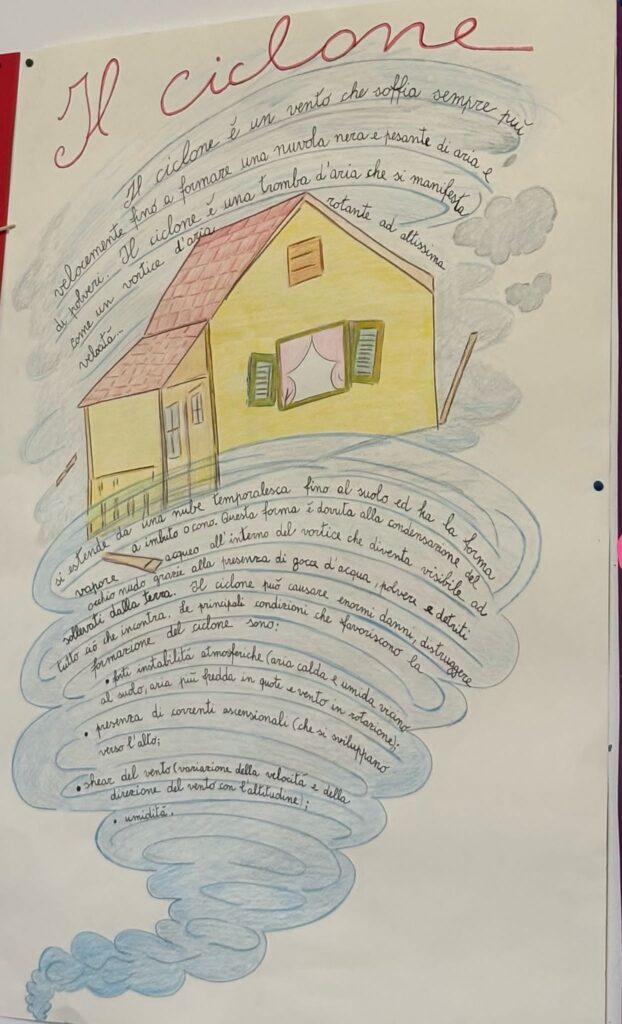 Il ciclone
Il ciclone é un vento che soffia sempre più
velocemente fino a formare una nuvola nera e pesante di aria e
di polveri. Il ciclone é una tromba d'aria che si manifesta
come un vortice d'aria rotante ad altissima
velocità...
si estende da una nube temporalesca fino al suolo ed ha la forma
a imbuto o cono. Questa forma é dovuta alla condensazione del
vapore acqueo all'interno del vortice che diventa visibile ad
occhio nudo grazie alla presenza di goccia d'acqua, polvere e detriti
sollevati dalla terra. Il ciclone può causare enormi danni, distruggere
tutto ció che incontra. Le principali condizioni che favoriscono la
formazione del ciclone sono:
• forti instabilità atmosferiche (aria calda e umida vicino
al suolo, aria più fredda in quote e vento in rotazione);
• presenza di correnti ascensionali (che si sviluppano
verso l'alto;
• shear del vento (variazione della velocità e della
direzione del vento con l'altitudine);
• umidità.